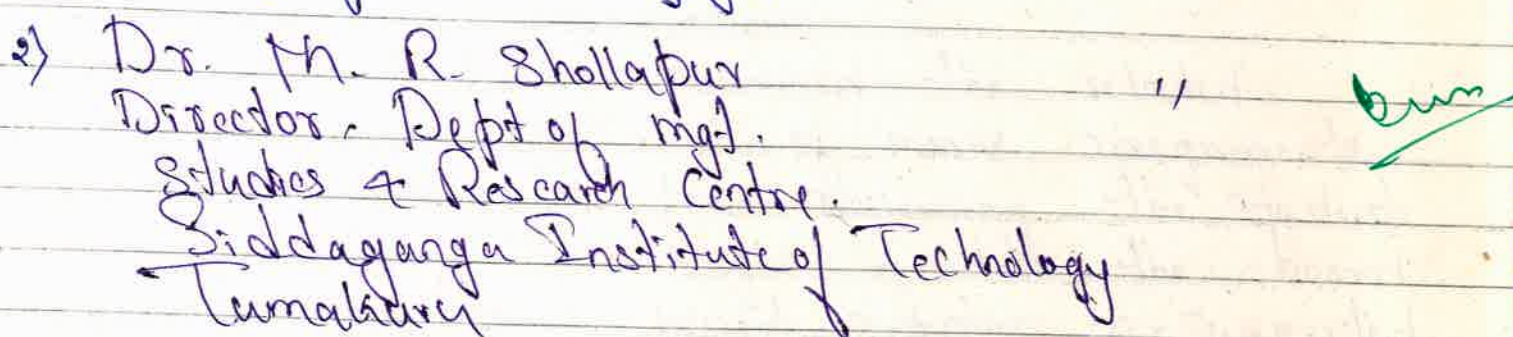 2) Dr. M. R. Shollapur "
Director. Dept of mgt.
Studies & Research Centre.
Siddaganga Institute of Technology
Tumakuru